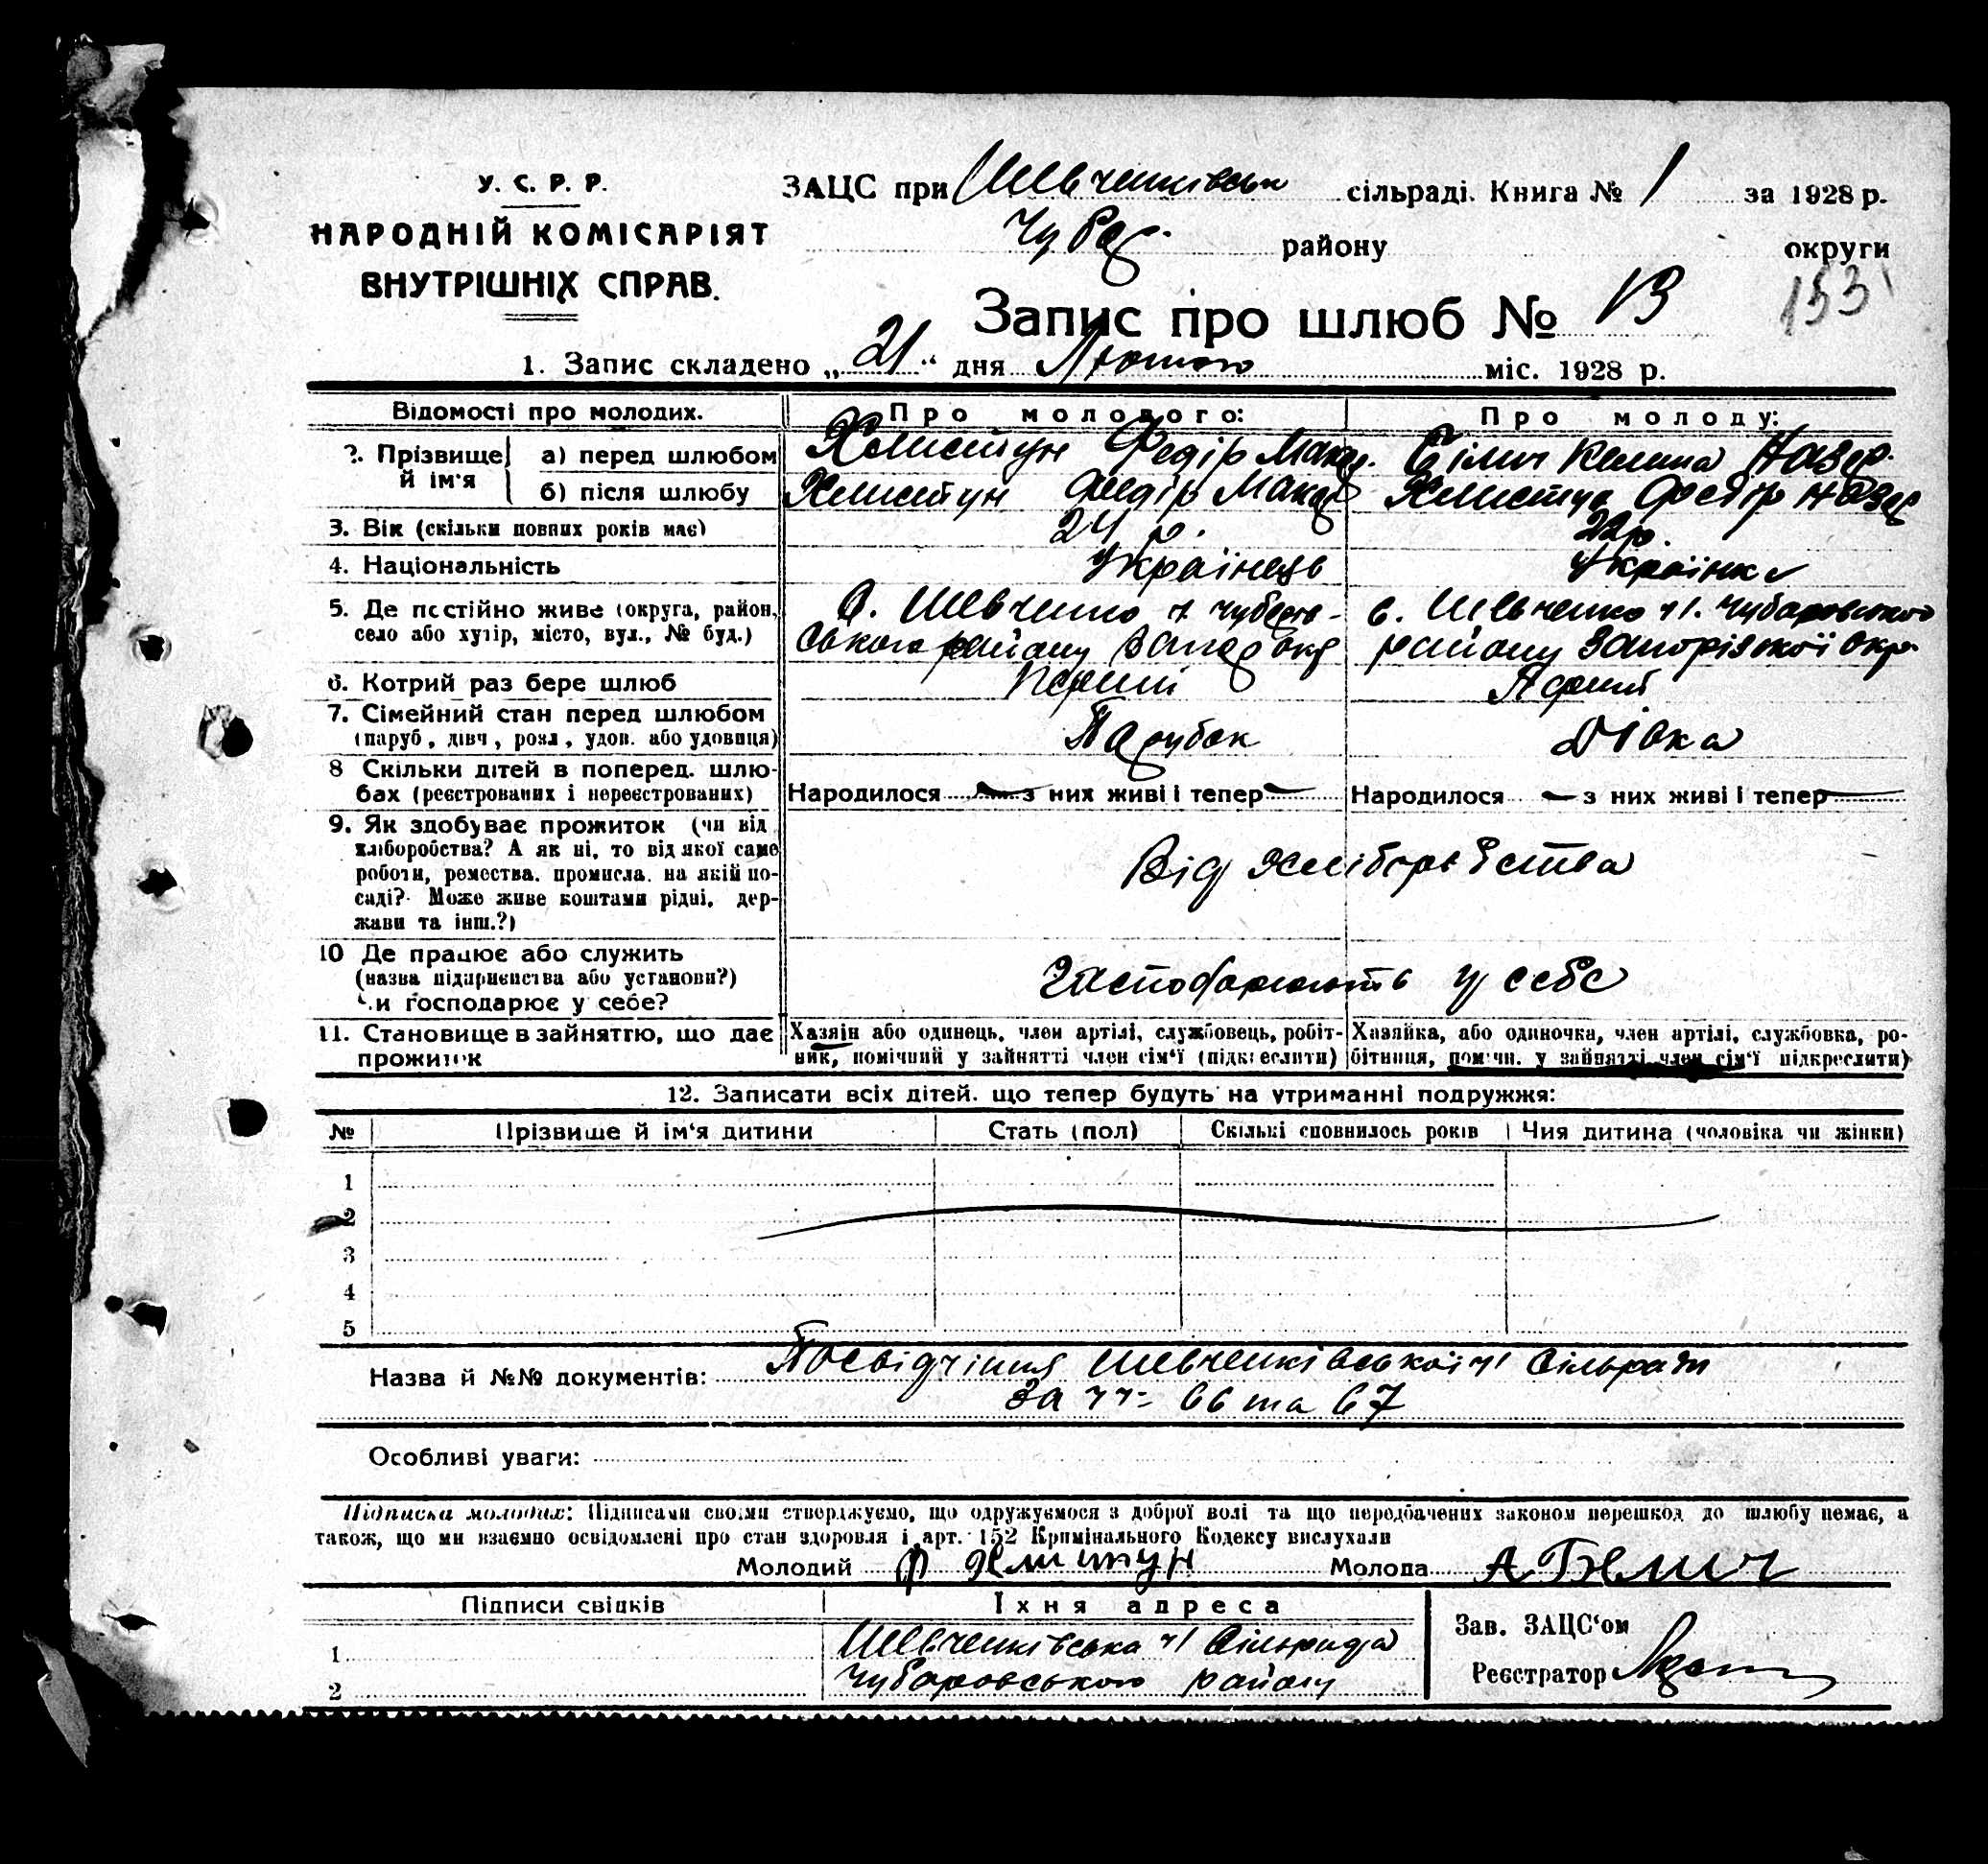 У. С. Р. Р.
НАРОДНІЙ КОМІСАРІЯТ
ВНУТРІШНІХ СПРАВ.
ЗАЦС при Шевченківськ сільраді. Книга № 1 за 1928 р.
Чубар. району округи
Запис про шлюб № 13
153
1. Запис складено „21“ дня Лютого міс. 1928 р.
Відомості про молодих. Про молодого: Про молоду:
2. Прізвище й ім'я
а) перед шлюбом Хлистун Федір Макар. Назар.
б) після шлюбу Хлистун Федір Макар Хлистун Федір Назар
3. Вік (скільки повних років має) 24 р. 22 р.
4. Національність Українець Українка
5. Де постійно живе (округа, район, село або хутір, місто, вул., № буд.)
с. Шевченко Чубарів-
ського району Запор окр
с. Шевченко ч1. Чубаровського
району Запорізкої окр.
6. Котрий раз бере шлюб Перший Перший
7. Сімейний стан перед шлюбом
(паруб., дівч., розл., удов. або удовиця) Парубок Дівка
8 Скільки дітей в поперед. шлю-
бах (реєстрованих і нереєстрованих) Народилося — з них живі і тепер — Народилося — з них живі і тепер —
9. Як здобуває прожиток (чи від
хліборобства? А як ні, то від якої саме
роботи, ремества, промисла, на якій по-
саді? Може живе коштами рідні, дер-
жави та інш.?)
Від хліборобства
10 Де працює або служить
(назва підприємства або установи?)
Чи господарює у себе?
Господарюють у себе
11. Становище в зайняттю, що дає
прожиток
Хазяїн або одинець, член артілі, службовець, робіт-
ник, помічний у зайнятті член сім'ї (підкреслити)
Хазяйка, або одиночка, член артілі, службовка, ро-
бітниця, помічн. у зайнятті член сім'ї підкреслити)
12. Записати всіх дітей. що тепер будуть на утриманні подружжя:
№ Прізвище й ім'я дитини Стать (пол) Скількі сповнилось років Чия дитина (чоловіка чи жінки)
1
2
3
4
5
Назва й №№ документів: Посвідчіння Шевченківської ч1 Сільради
за чч- 66 та 67
Особливі уваги:
Підписка молодих: Підписами своїми стверджуємо, що одружуємося з доброї волі та що передбачених законом перешкод до шлюбу немає, а
також, що ми взаємно освідомлені про стан здоровля і арт. 152 Кримінального Кодексу вислухали
Молодий Ф Хлистун Молода А Бѣлич
Підписи свідків Їхня адреса
1 Шевченківська ч1 Сільрада
2 Чубаровського району
Зав. ЗАЦС'ом
Реєстратор